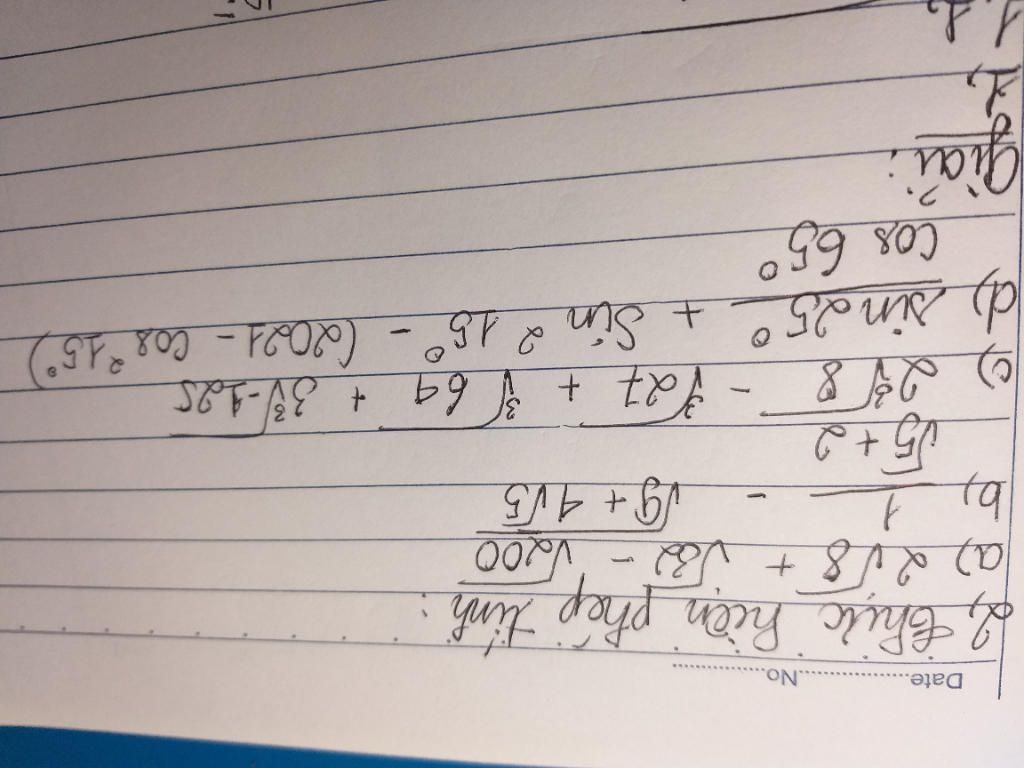 Date....................No....................
2, thực hiện phép tính :
a) 2√8 + √32 - √200
b) 1/(√5 + 2) - √(9 + 4√5)
c) 2∛8 - ∛27 + ∛64 + 3∛-125
d) sin 25°/cos 65° + Sin² 15° - (2021 - cos² 15°)
giải :
1,